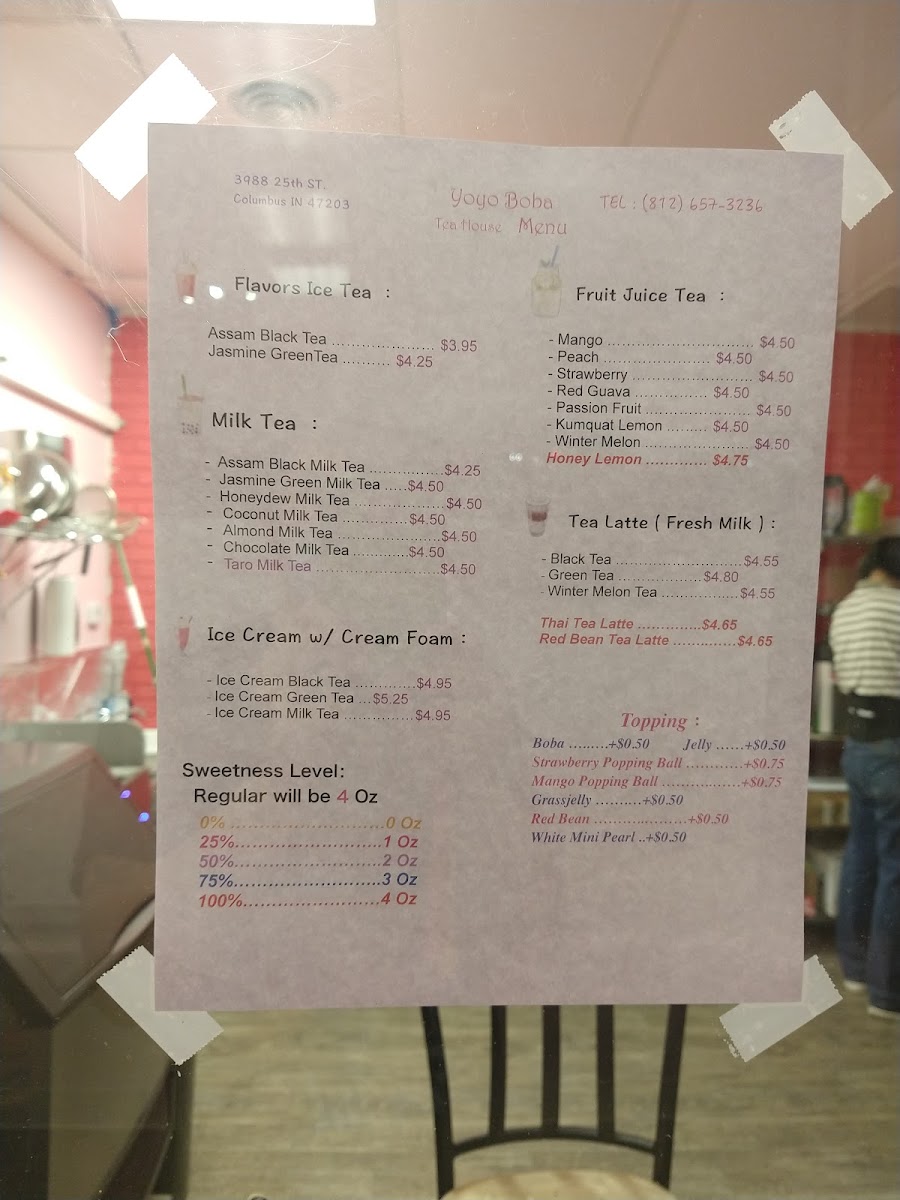 3988 25th ST.
Columbus IN 47203
Yoyo Boba
Tea House Menu
TEL : (812) 657-3236
Flavors Ice Tea :
Assam Black Tea ..................... $3.95
Jasmine GreenTea .......... $4.25
Milk Tea :
- Assam Black Milk Tea ................$4.25
- Jasmine Green Milk Tea .....$4.50
- Honeydew Milk Tea ....................$4.50
- Coconut Milk Tea ..............$4.50
- Almond Milk Tea .......................$4.50
- Chocolate Milk Tea ............$4.50
- Taro Milk Tea ...........................$4.50
Ice Cream w/ Cream Foam :
- Ice Cream Black Tea .............$4.95
- Ice Cream Green Tea ...$5.25
- Ice Cream Milk Tea ...............$4.95
Sweetness Level:
Regular will be 4 Oz
0% ............................0 Oz
25%...........................1 Oz
50%...........................2 Oz
75%...........................3 Oz
100%.........................4 Oz
Fruit Juice Tea :
- Mango ................................ $4.50
- Peach ....................... $4.50
- Strawberry .......................... $4.50
- Red Guava ................ $4.50
- Passion Fruit ....................... $4.50
- Kumquat Lemon ......... $4.50
- Winter Melon ....................... $4.50
Honey Lemon ............. $4.75
Tea Latte ( Fresh Milk ) :
- Black Tea ...........................$4.55
- Green Tea ..................$4.80
- Winter Melon Tea .................$4.55
Thai Tea Latte ..............$4.65
Red Bean Tea Latte ..............$4.65
Topping :
Boba .........+$0.50 Jelly ......+$0.50
Strawberry Popping Ball ............+$0.75
Mango Popping Ball .................+$0.75
Grassjelly ..........+$0.50
Red Bean ....................+$0.50
White Mini Pearl ..+$0.50